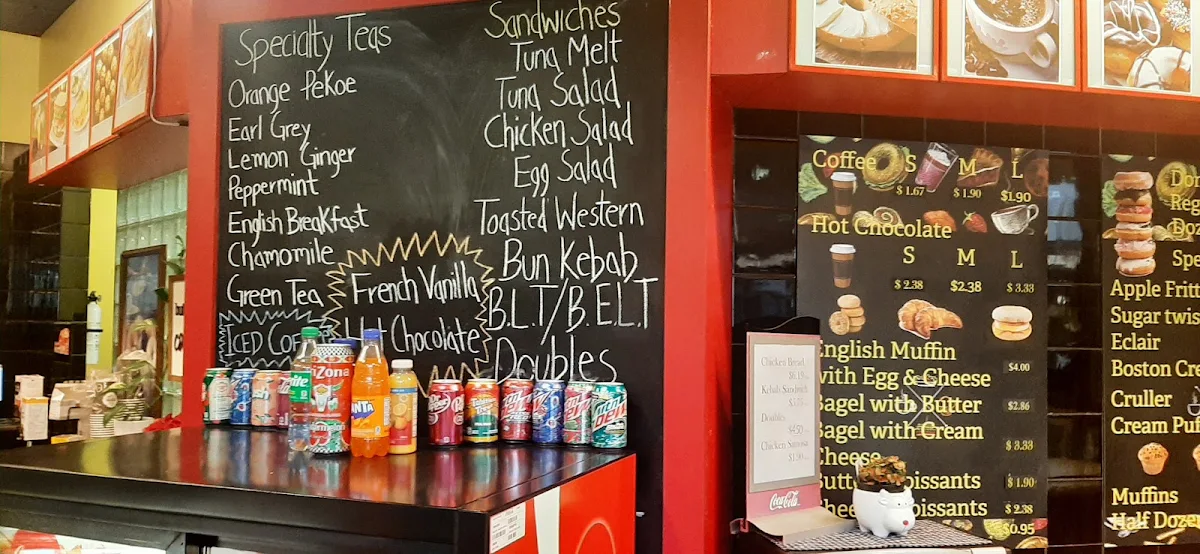 Specialty Teas
Orange Pekoe
Earl Grey
Lemon Ginger
Peppermint
English Breakfast
Chamomile
Green Tea
ICED
French Vanilla
Hot Chocolate
Sandwiches
Tuna Melt
Tuna Salad
Chicken Salad
Egg Salad
Toasted Western
Bun Kebab
B.L.T/B.E.L.T
Doubles
Coffee S M L
$1.67 $1.90 $1.90
Hot Chocolate
S M L
$2.38 $2.38 $3.33
English Muffin
with Egg & Cheese $4.00
Bagel with Butter $2.86
Bagel with Cream
Cheese $3.33
$1.90
$2.38
$0.95
Chicken Bread
Kebab Sandwich
Doubles
$4.50
Chicken Samosa
$1.90
Coca-Cola
Apple Fritt
Sugar twis
Eclair
Boston Cre
Cruller
Cream Puf
Muffins
Half Doze
Reg
Doz
Spe
ARiZona
FANTA